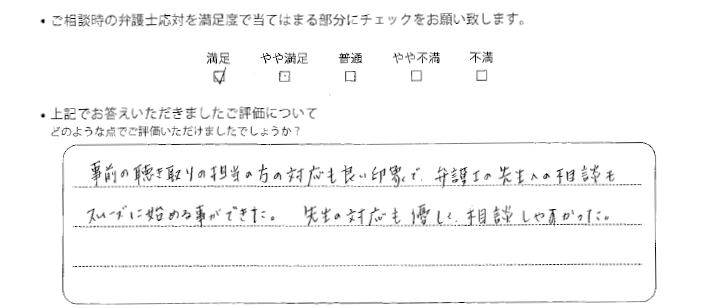 • ご相談時の弁護士応対を満足度で当てはまる部分にチェックをお願い致します。
満足 やや満足 普通 やや不満 不満
☑ ☐ ☐ ☐ ☐
• 上記でお答えいただきましたご評価について
どのような点でご評価いただけましたでしょうか？
事前の聴き取りの担当の方の対応も良い印象で、弁護士の先生への相談も
スムーズに始める事ができた。 先生の対応も優しく、相談しやすかった。